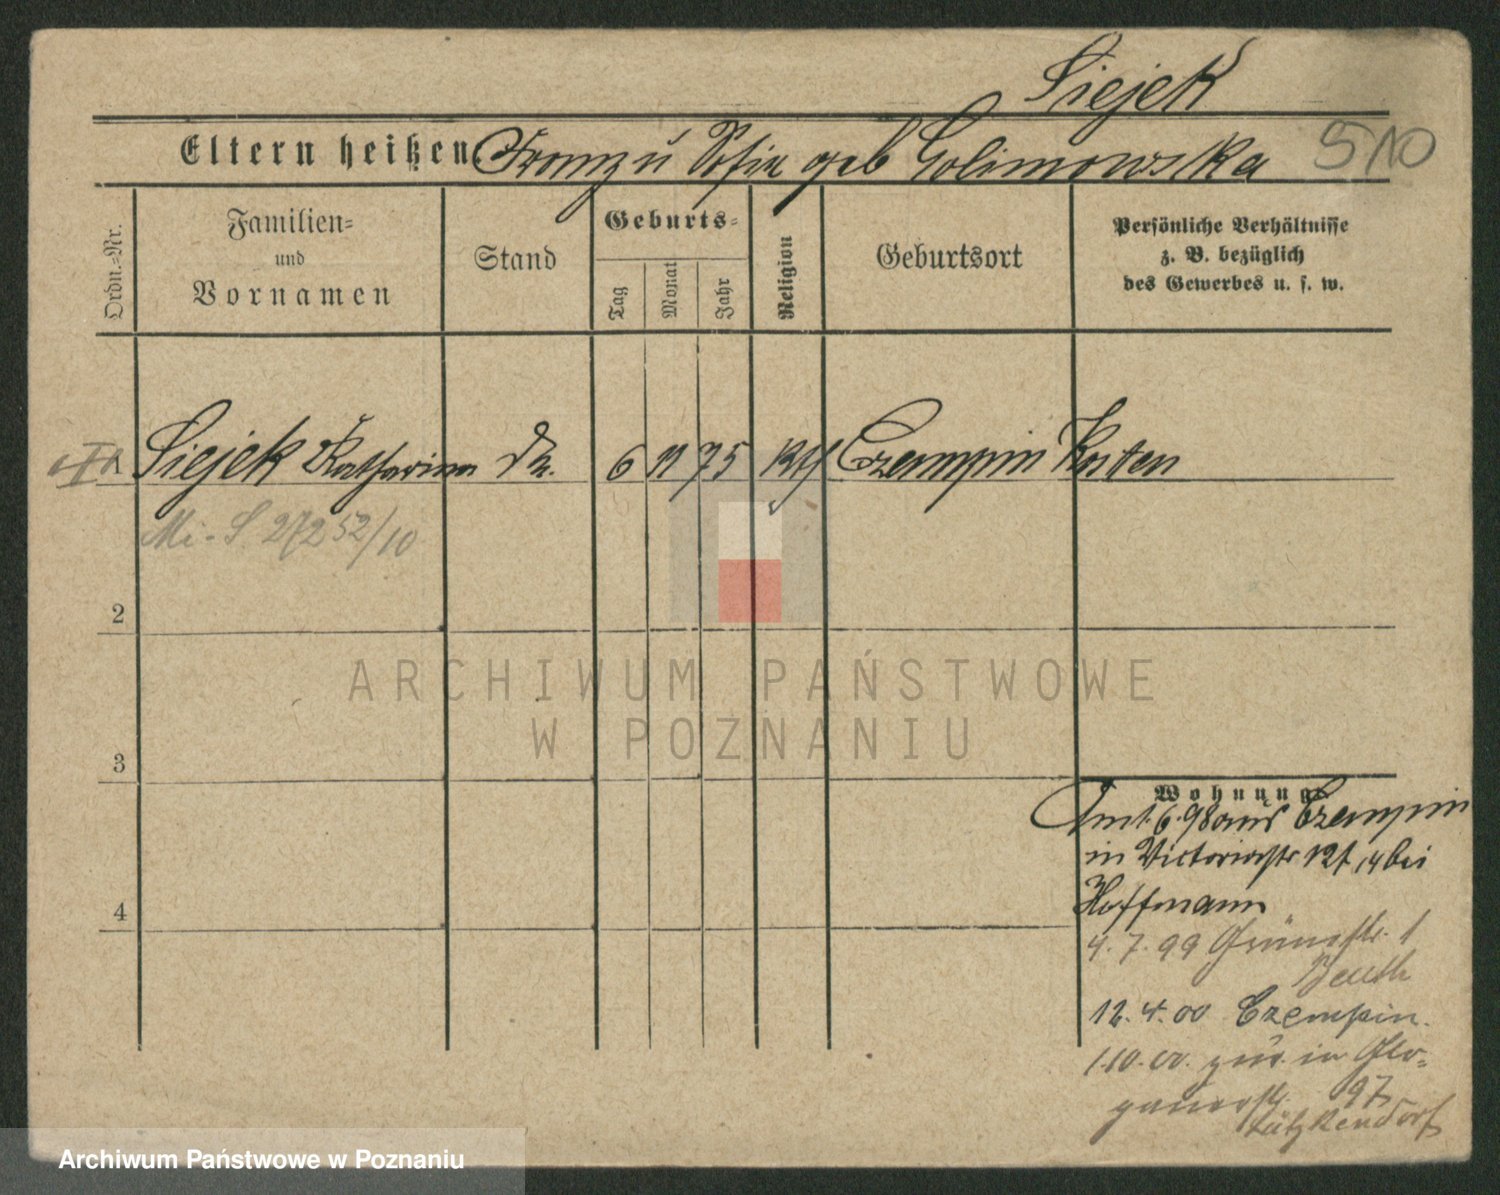 Siejek
Eltern heißen Franz u Sofie geb Golimowska 510
Ordn.-Nr.
Familien-
und
Vornamen
Stand
Geburts-
Tag
Monat
Jahr
Religion
Geburtsort
Persönliche Verhältnisse
z. B. bezüglich
des Gewerbes u. s. w.
1 Siejek Katharina 6 11 75 kth Czempin Kosten
Mi-S 27252/10
2
3
4
ARCHIWUM PAŃSTWOWE
W POZNANIU
Wohnung
Am 1.6.98 aus Czempin
in Victoriastr 12 bei
Hoffmann
4.7.99 Grünestr. 1
12.4.00 Czempin.
1.10.00. zur. in Glo-
gauerstr. 97
Lützkendorf
Archiwum Państwowe w Poznaniu